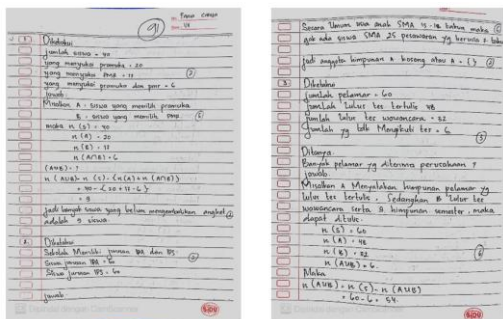 91
1. Diketahui
jumlah siswa = 40
yang menyukai pramuka = 20
yang menyukai PMR = 17
yang menyukai pramuka dan pmr = 6
Jawab:
Misalkan A = siswa yang memilih pramuka
B = siswa yang memilih PMR
maka n(S) = 40
n(A) = 20
n(B) = 17
n(A∩B) = 6
(AUB)c = ?
n(AUB)c = n(S) - {n(A) + n(B) - n(A∩B)}
= 40 - {20 + 17 - 6}
= 9
Jadi banyak siswa yang belum mengembalikan angket
adalah 9 siswa.
2. Diketahui
Sekolah Memiliki jurusan IPA dan IPS.
Siswa jurusan IPA = 60
Siswa jurusan IPS = 60
Jawab
Secara Umum usia anak SMA 15-18 tahun maka
gak ada siswa SMA 25 pesawaran yg berusia
jadi anggota himpunan A kosong atau A = { }
3. Diketahui
jumlah pelamar = 60
jumlah lulus tes tertulis 48
jumlah lulus tes wawancara = 32
jumlah yg tdk Mengikuti tes = 6
Ditanya:
Banyak pelamar yg diterima perusahaan ?
Jawab:
Misalkan A Menyatakan himpunan pelamar yg
lulus tes tertulis. Sedangkan B lulus tes
wawancara serta S himpunan semesta. maka
dapat ditulis.
n(S) = 60
n(A) = 48
n(B) = 32
n(AUB)c = 6.
Maka
n(AUB) = n(S) - n(AUB)c
= 60 - 6 = 54.